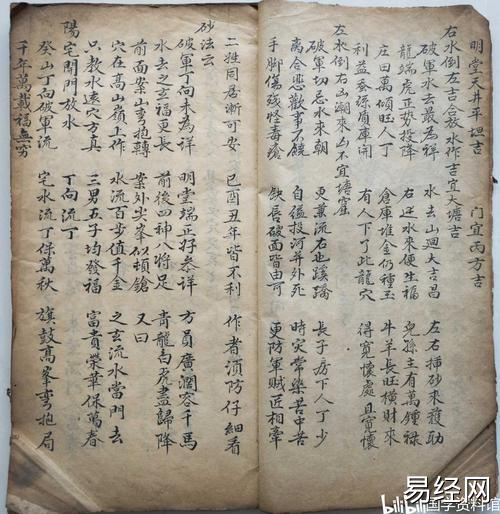 明堂天井平坦吉 門宜丙方吉
右水倒左吉合救水作吉宜大塘吉
破軍水去最為祥 水去山迴大吉昌 左右掃砂來護助
龍端虎正勢投降 右水來便生福 兒孫主有萬鍾祿
庄田萬頃旺人丁 倉庫堆金仍種玉 牛羊長旺橫財來
利益蚕添庫間 有人下了此龍穴 得寬懷處且寬懷
左水倒右山潮來山不宜塘窟
破軍切忌水來朝 更兼流右也蹊蹺 長子房下人丁少
離合悲歡事不饒 自縊投河并外死 時灾常樂苦中苦
手脚傷殘怪毒瘡 缺唇破面皆由可 更防軍賊匠相牽
二姓同居漸可安 巳酉丑年皆不利 作者湏防仔細看
砂法云
破軍丁向未為祥 明堂端正好恭祥 方員廣濶容千馬
水去之玄福更長 前後四神八將足 青龍白虎盡歸降
前面案山弯抱轉 案外尖峯似頓鎗 又曰
穴在高山嶺上作 水流百步值千金 之玄流水當門去
只教水遶穴方真 三男五子均發福 富貴榮華保萬春
陽宅開門放水 丁向流丁
癸山丁向破軍流 宅水流丁保萬秋 旗鼓高峯弯抱局
千年萬載福無穷
易经网
bilibili 国学资料馆